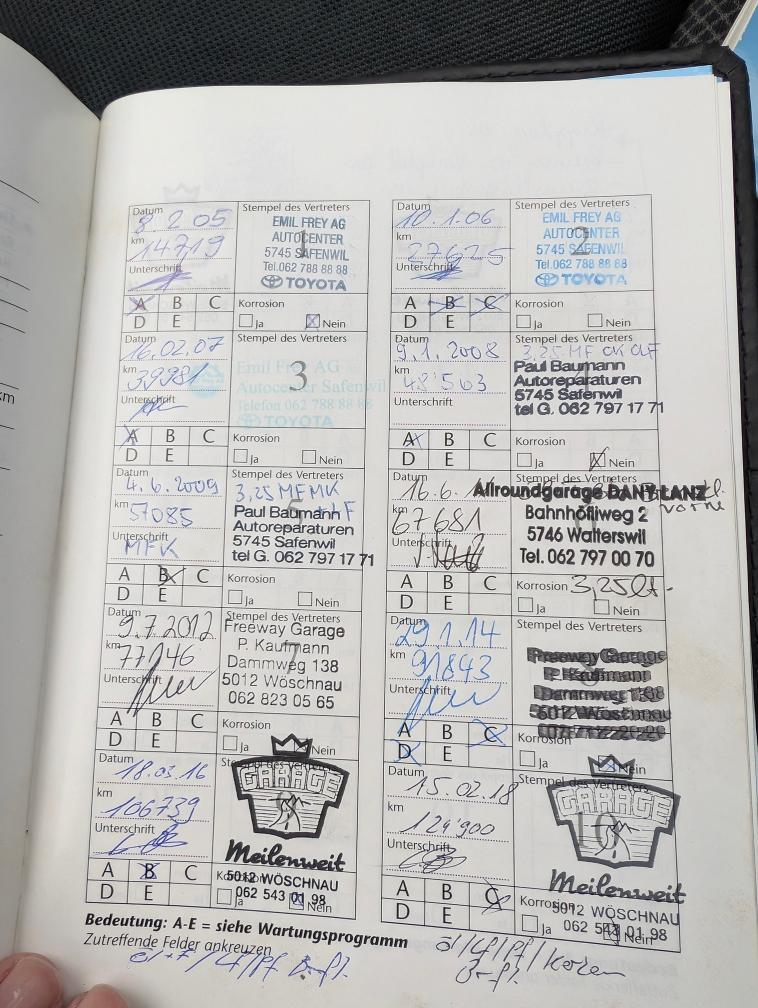 Datum
8.2.05
km
14719
Unterschrift
Stempel des Vertreters
EMIL FREY AG
AUTOCENTER
5745 SAFENWIL
Tel.062 788 88 88
TOYOTA
1
A B C
D E
Korrosion
Ja Nein
Datum
10.1.06
km
27625
Unterschrift
Stempel des Vertreters
EMIL FREY AG
AUTOCENTER
5745 SAFENWIL
Tel.062 788 88 88
TOYOTA
2
A B C
D E
Korrosion
Ja Nein
Datum
16.02.07
km
39981
Unterschrift
Stempel des Vertreters
Emil Frey AG
Autocenter Safenwil
Telefon 062 788 88 88
TOYOTA
3
A B C
D E
Korrosion
Ja Nein
Datum
9.1.2008
km
48'563
Unterschrift
Stempel des Vertreters
3,25 MF
Paul Baumann
Autoreparaturen
5745 Safenwil
tel G. 062 797 17 71
A B C
D E
Korrosion
Ja Nein
Datum
4.6.2009
km
57085
Unterschrift
MFK
Stempel des Vertreters
3,25 MFMK
Paul Baumann
Autoreparaturen
5745 Safenwil
tel G. 062 797 17 71
A B C
D E
Korrosion
Ja Nein
Datum
16.6.
km
67681
Unterschrift
Allroundgarage DANY LANZ
vorne
Bahnhöfliweg 2
5746 Walterswil
Tel. 062 797 00 70
A B C
D E
Korrosion 3,25lt.
Ja Nein
Datum
9.7.2012
km
77146
Unterschrift
Stempel des Vertreters
Freeway Garage
P. Kaufmann
Dammweg 138
5012 Wöschnau
062 823 05 65
7
A B C
D E
Korrosion
Ja Nein
Datum
29.1.14
km
91843
Unterschrift
Stempel des Vertreters
Freeway Garage
P. Kaufmann
Dammweg 138
5012 Wöschnau
A B C
D E
Korrosion
Ja Nein
Datum
18.03.16
km
106739
Unterschrift
Stempel des Vertreters
GARAGE
9
Meilenweit
5012 WÖSCHNAU
062 543 01 98
A B C
D E
Korrosion
Ja Nein
Datum
15.02.18
km
129'900
Unterschrift
Stempel des Vertreters
GARAGE
10
Meilenweit
5012 WÖSCHNAU
062 543 01 98
A B C
D E
Korrosion
Ja Nein
Bedeutung: A-E = siehe Wartungsprogramm
Zutreffende Felder ankreuzen
km